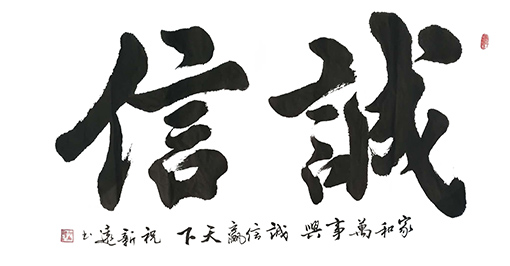 誠信
家和萬事興 誠信贏天下 祝新遠书